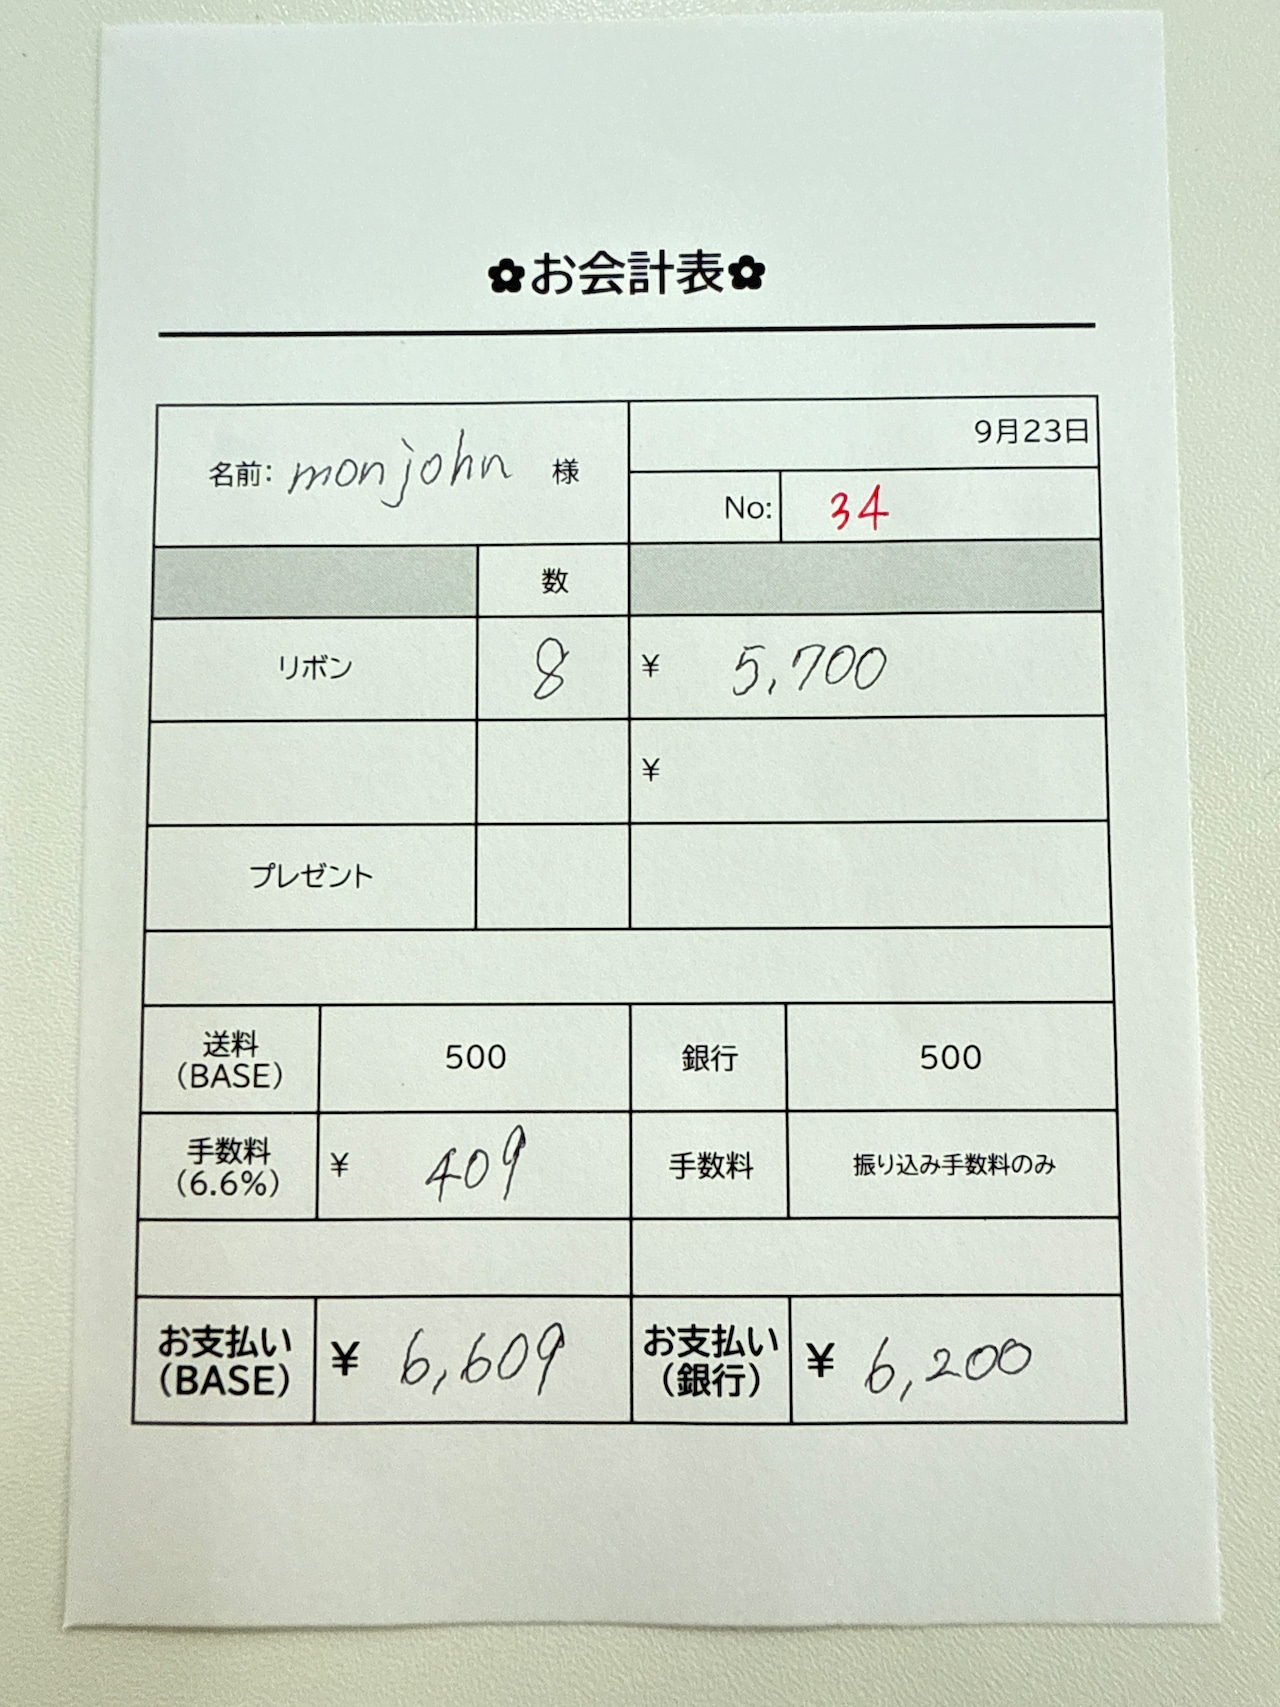 ✿お会計表✿
名前: monjohn 様
9月23日
No: 34
数
リボン 8 ¥ 5,700
¥
プレゼント
送料 (BASE) 500 銀行 500
手数料 (6.6%) ¥ 409 手数料 振り込み手数料のみ
お支払い (BASE) ¥ 6,609 お支払い (銀行) ¥ 6,200